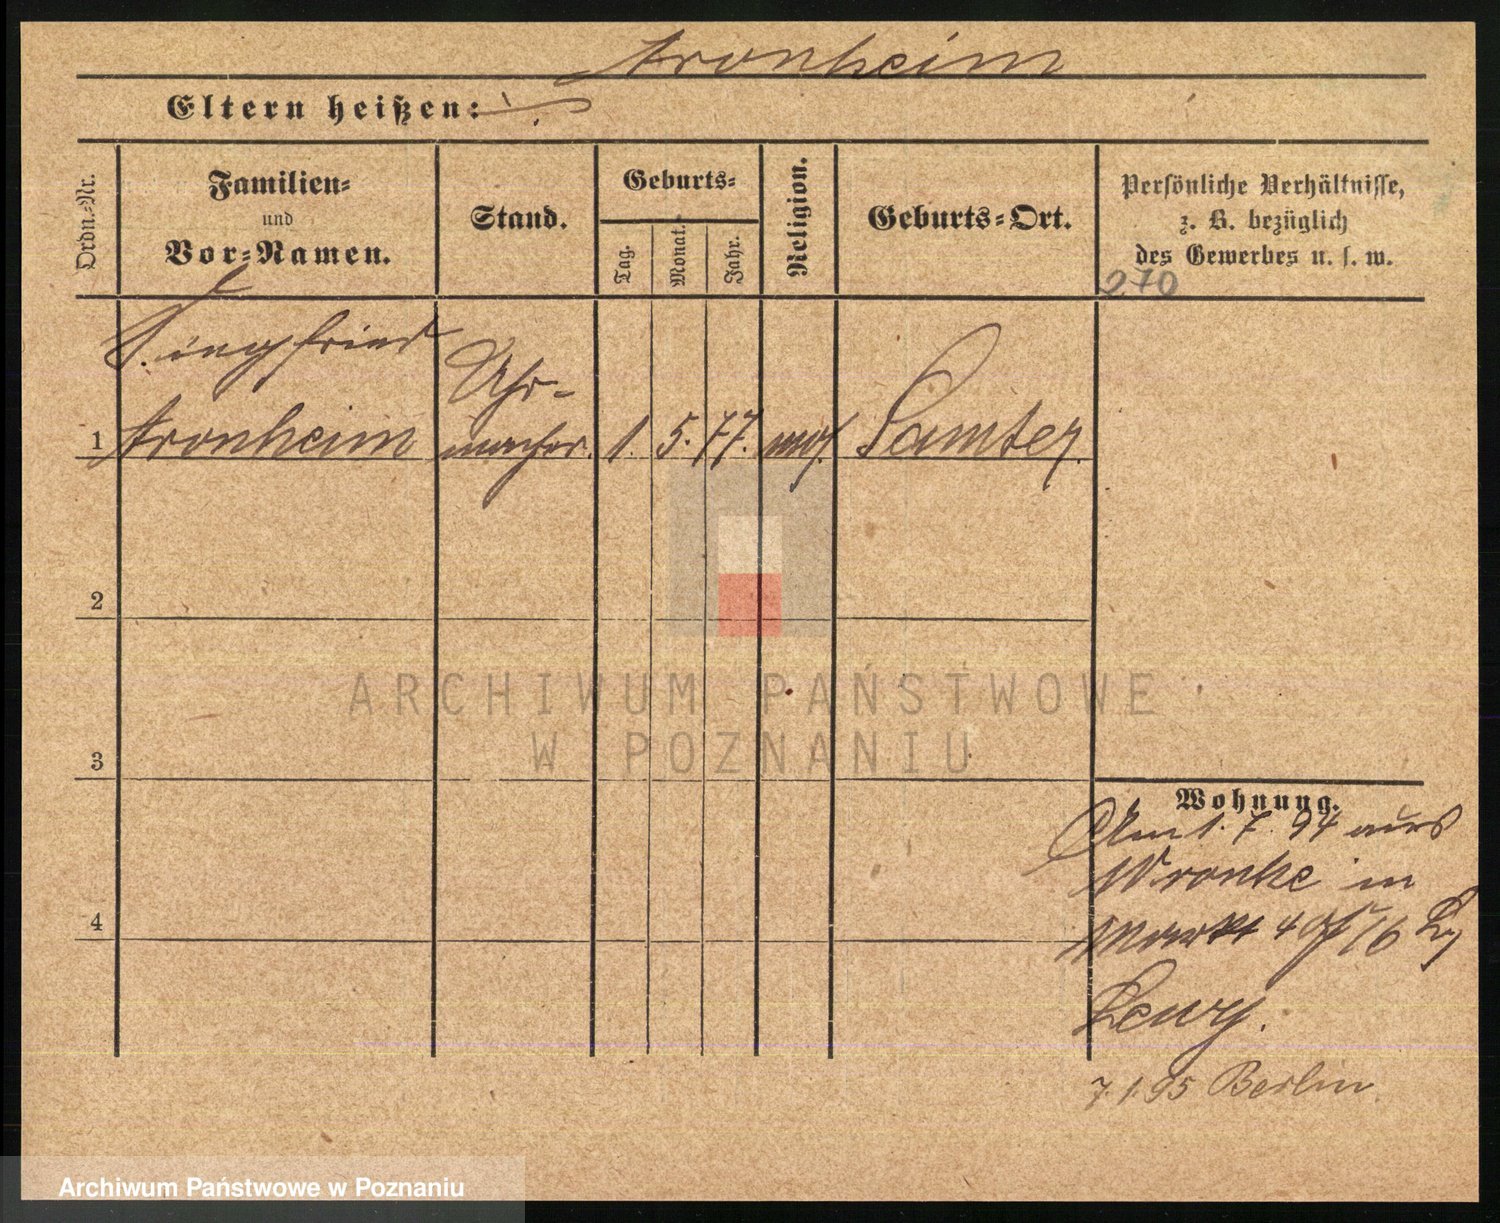 Aronheim
Eltern heißen:
Ordn.-Nr.
Familien-
und
Vor-Namen.
Stand.
Geburts-
Tag.
Monat.
Jahr.
Religion.
Geburts-Ort.
Persönliche Verhältnisse,
z. B. bezüglich
des Gewerbes u. s. w.
270
Siegfried
Uhr-
1 Aronheim macher. 1. 5. 77. mos. Samter.
2
ARCHIWUM PAŃSTWOWE
W POZNANIU
3
Wohnung.
Am 1. 7. 94 aus
Wronke in
4
Markt 4
Lewy.
7.1.95 Berlin.
Archiwum Państwowe w Poznaniu